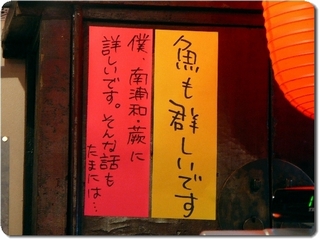 魚も群しいです
僕、南浦和・蕨に
詳しいです。そんな話も
たまには…